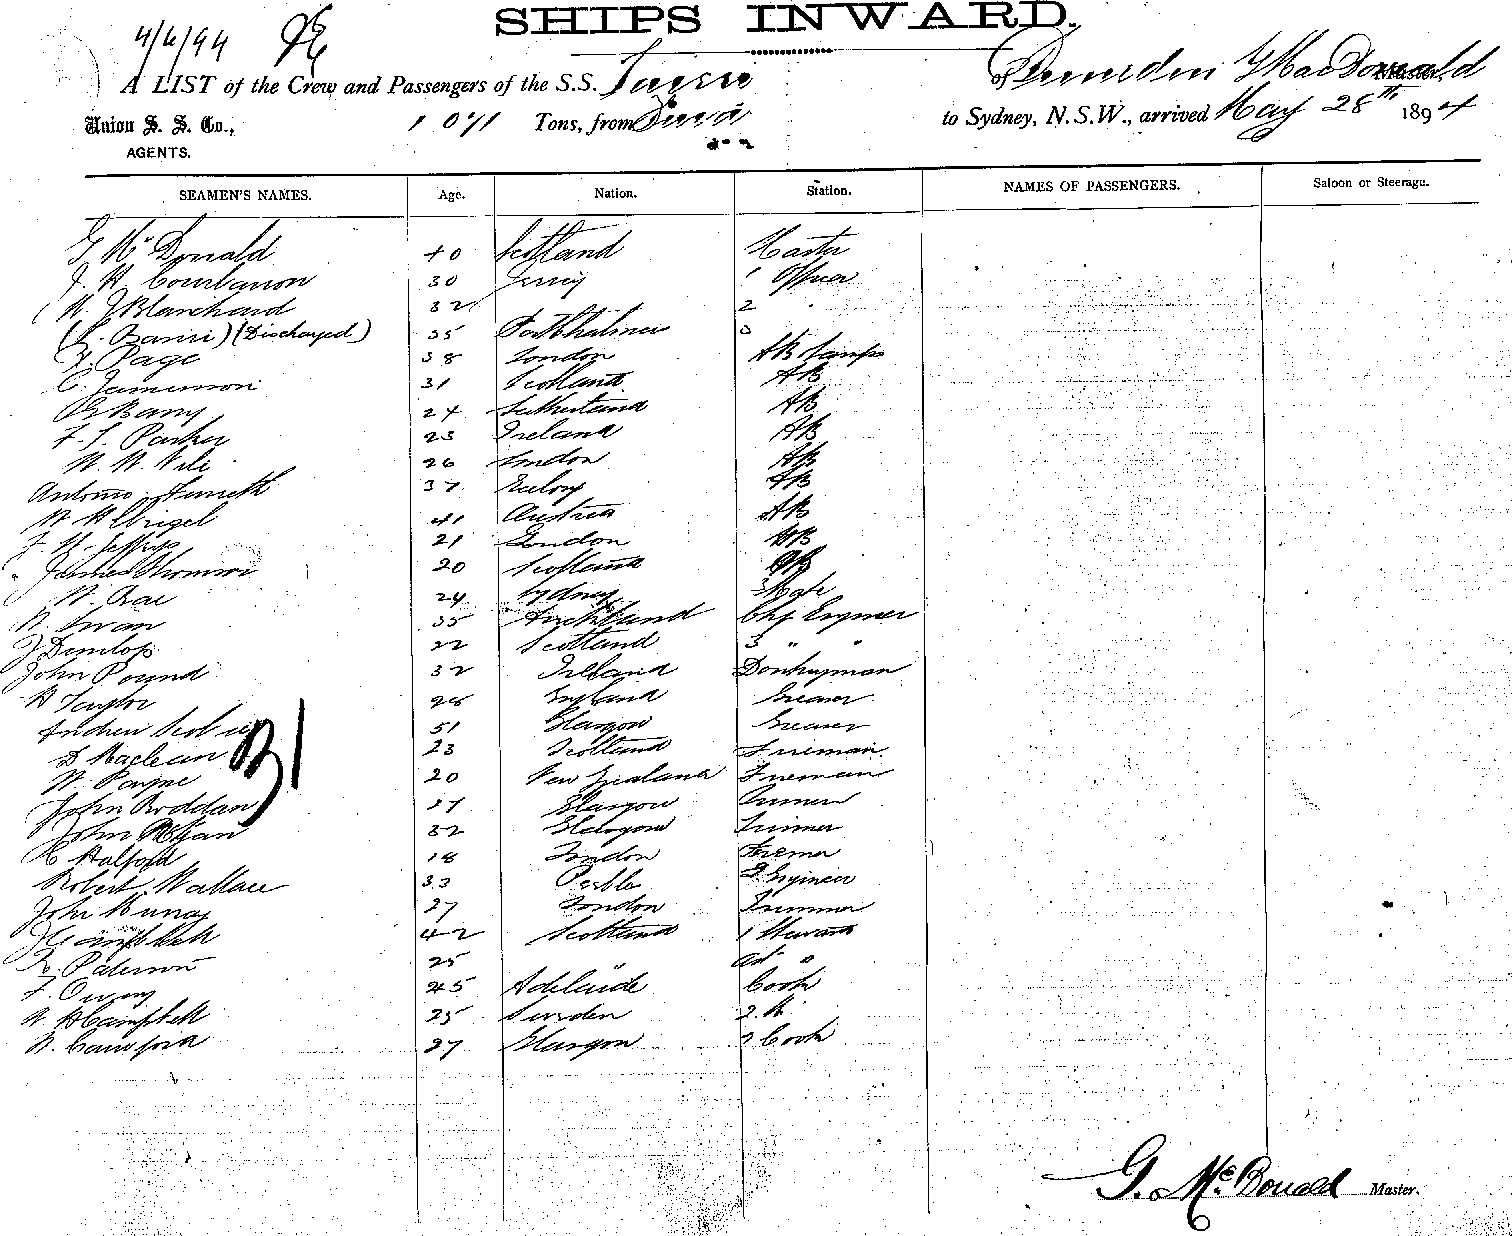 SHIPS INWARD.
4/6/94
A LIST of the Crew and Passengers of the S.S. Taviuni of Dunedin G MacDonald Master,
Union S. S. Co., 1071 Tons, from Suva to Sydney, N.S.W., arrived May 28th 1894
AGENTS.
SEAMEN'S NAMES. Age. Nation. Station. NAMES OF PASSENGERS. Saloon or Steerage.
G McDonald 40 Scotland Master
J. H Courbarron 30 Jersey 1 Officer
W. J Blanchard 32 2
(Discharged) 35 3
Page 38 London AB Lamps
C. Jamieson 31 Scotland AB
G Barry 24 Sutherland AB
F. S. Parker 23 Ireland AB
W. W. 26 London AB
Antonio 37 AB
W 41 Austria AB
F. W. Jeffrys 21 London AB
James Thomson 20 Scotland
W. Rae 24 Sydney
W. Swan 35 Auckland Chf Engineer
J Dunlop 22 Scotland 3 " "
John Pound 32 Ireland Donkeyman
H Taylor 28 England Greaser
Andrew 51 Glasgow Greaser
D Maclean 23 Scotland Fireman
31
W. Payne 20 New Zealand Fireman
John Roddan 37 Glasgow
John McKean 32 Glasgow Trimmer
Halford 18 London
Robert Wallace 33 2 Engineer
John Murray 27 London Trimmer
J Campbell 42 Scotland 1 Steward
Paterson 25 " "
F. Owen 45 Adelaide Cook
W. H Campbell 25
W. Crawford 27 Glasgow 2 Cook
G. McDonald Master.